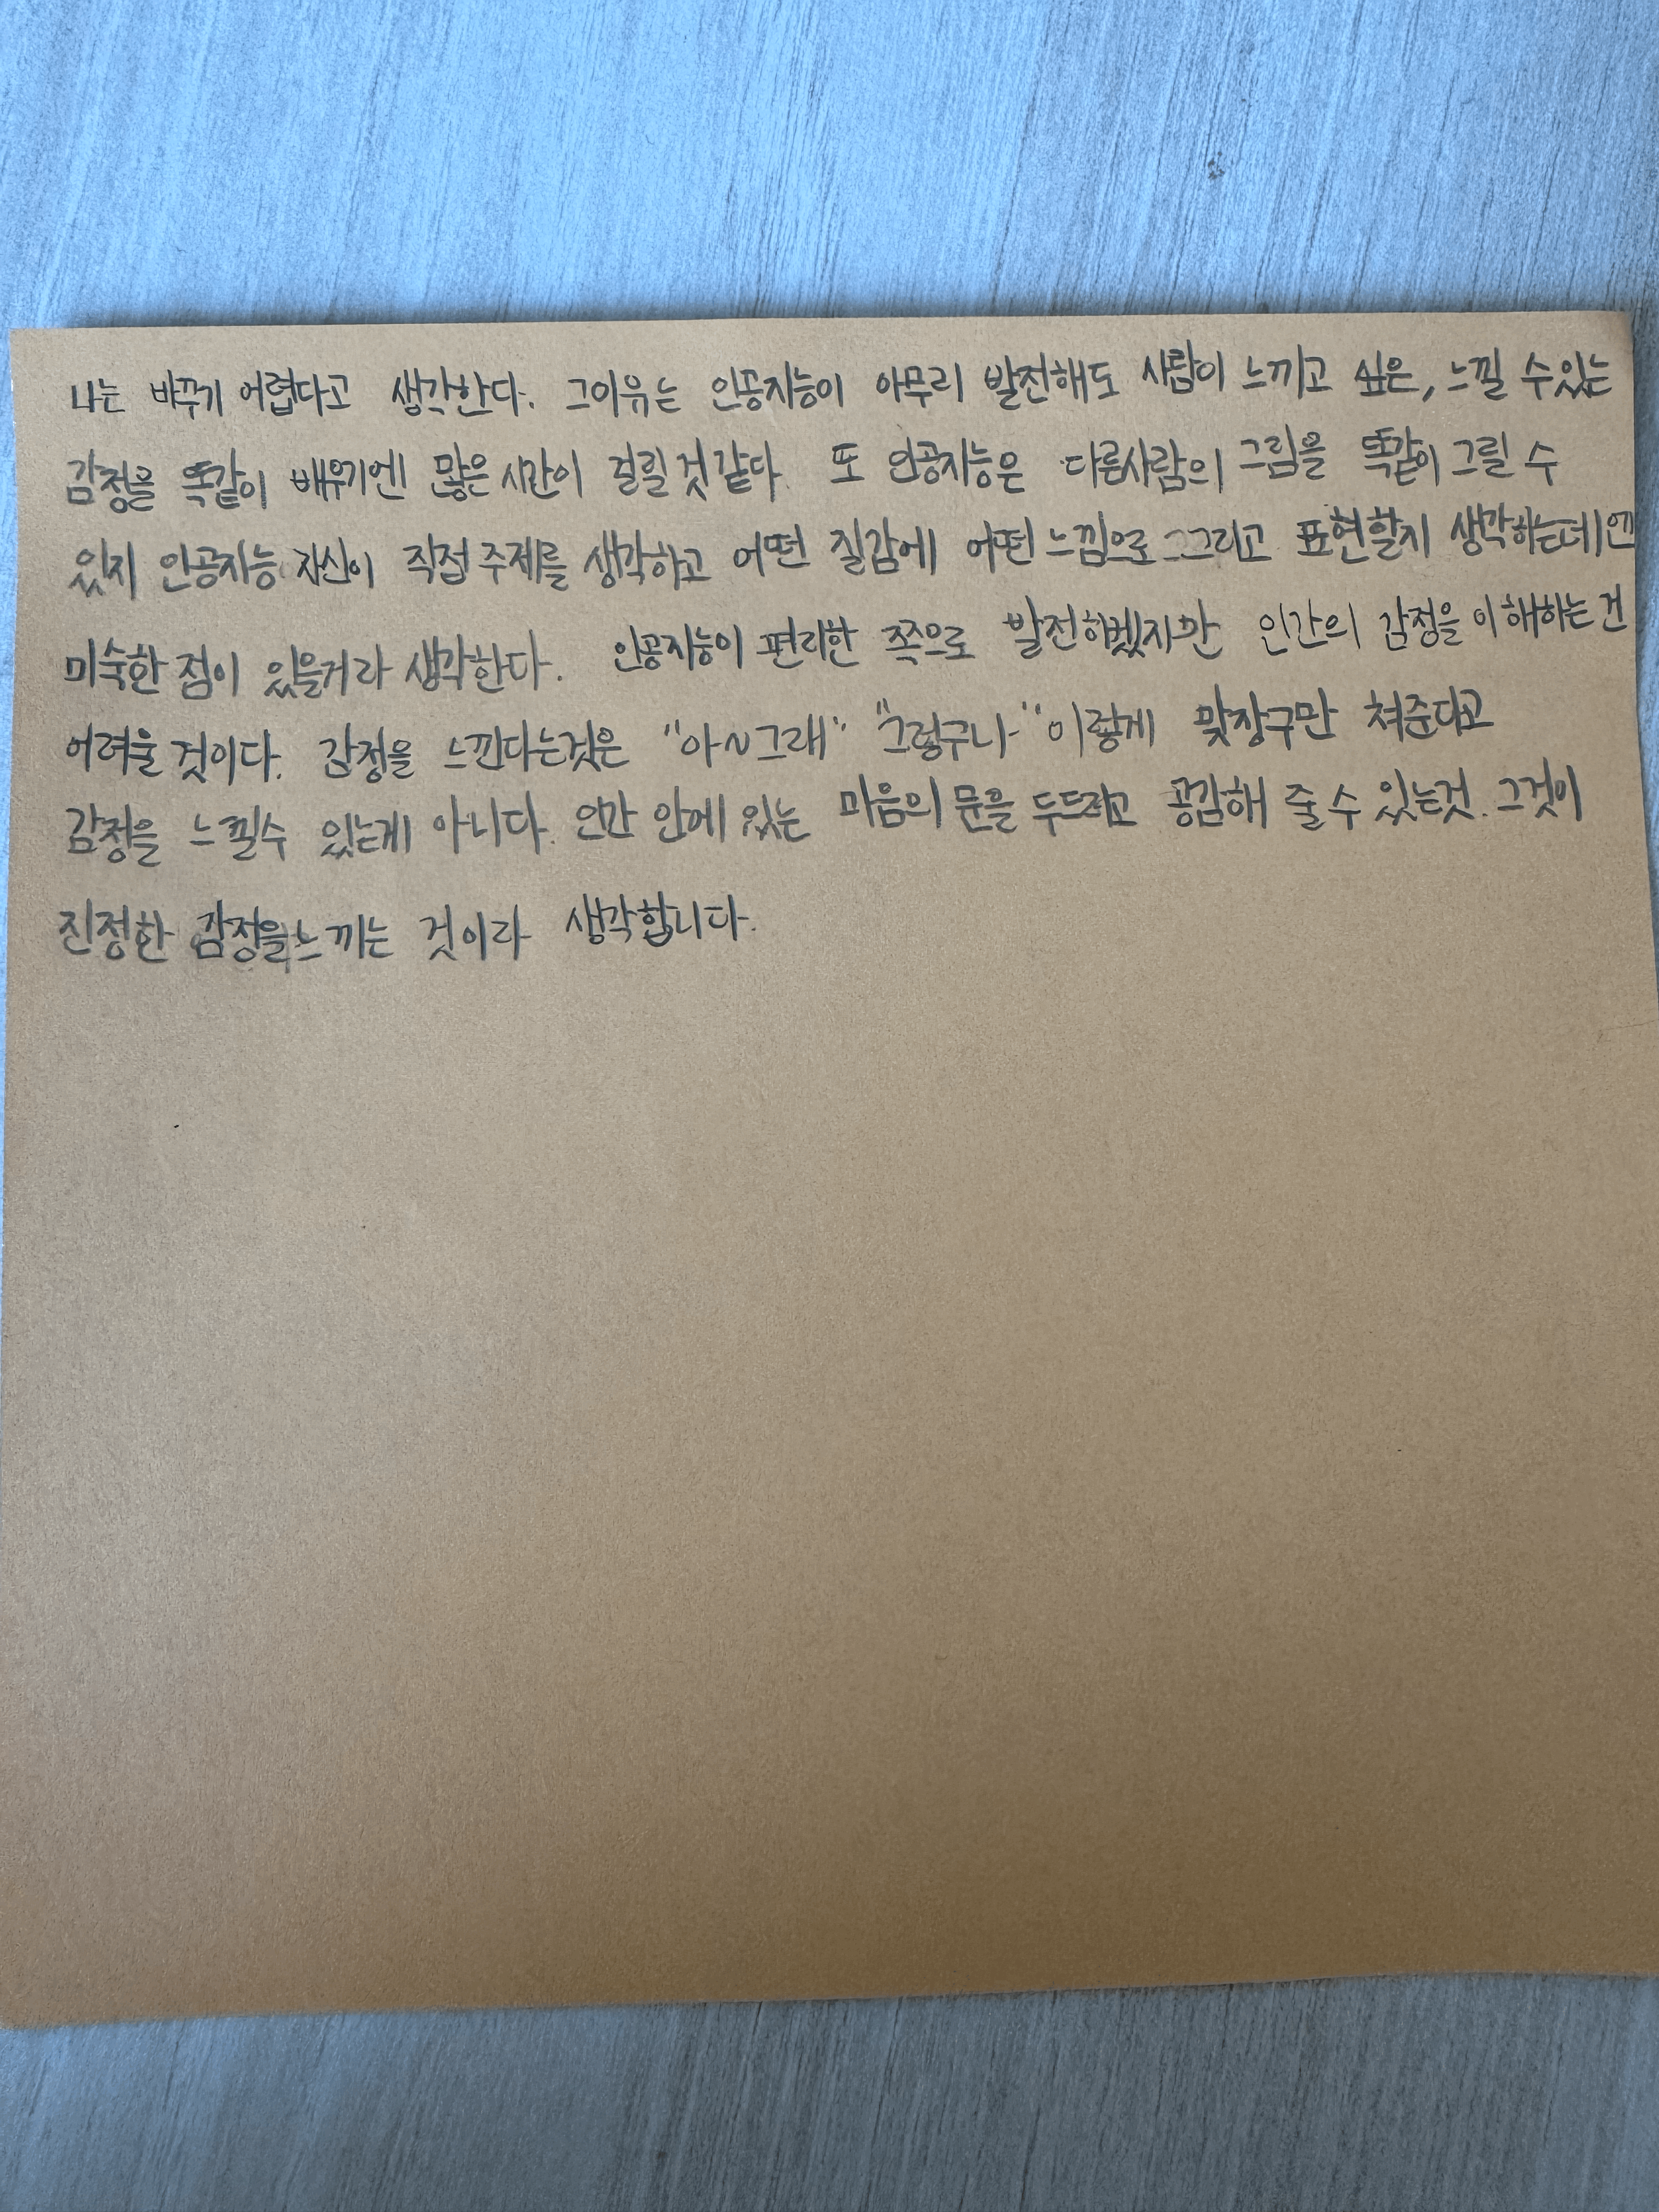 나는 바꾸기 어렵다고 생각한다. 그이유는 인공지능이 아무리 발전해도 사람이 느끼고 싶은, 느낄 수있는
감정을 똑같이 배우기엔 많은 시간이 걸릴 것 같다. 또 인공지능은 다른사람의 그림을 똑같이 그릴 수
있지 인공지능 자신이 직접 주제를 생각하고 어떤 질감에 어떤 느낌으로 그리고 표현할지 생각하는데엔
미숙한 점이 있을거라 생각한다. 인공지능이 편리한 쪽으로 발전하겠지만 인간의 감정을 이해하는 건
어려울 것이다. 감정을 느낀다는것은 "아~그래" "그렇구나" 이렇게 맞장구만 쳐준다고
감정을 느낄수 있는게 아니다. 인간 안에 있는 마음의 문을 두드리고 공감해 줄 수 있는것. 그것이
진정한 감정을 느끼는 것이라 생각합니다.